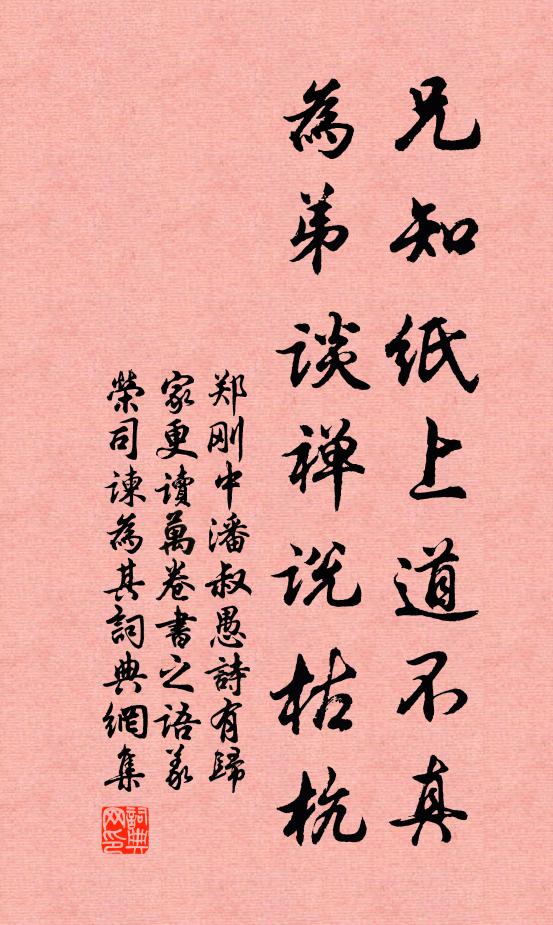 兄知纸上道不真
為弟谈禅说枯杭
郑刚中潘叔愚詩有歸
家更讀萬卷書之语義
榮司谏為其詞典網集
詞典网印